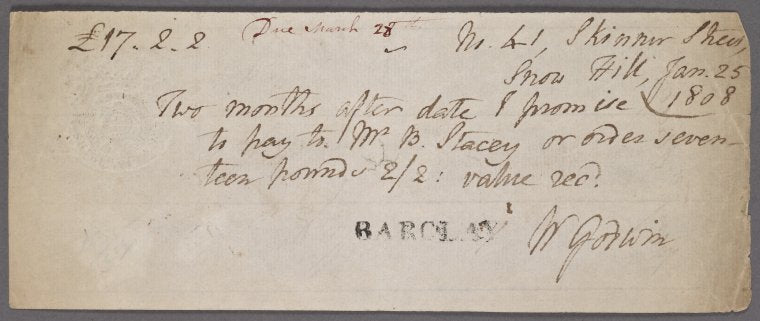 £17. 2. 2 Due March 28th No. 41, Skinner Street,
Snow Hill, Jan. 25
Two months after date I promise 1808
to pay to Mr B. Stacey or order seven-
teen pounds 2/2: value recd.
BARCLAY
W Godwin